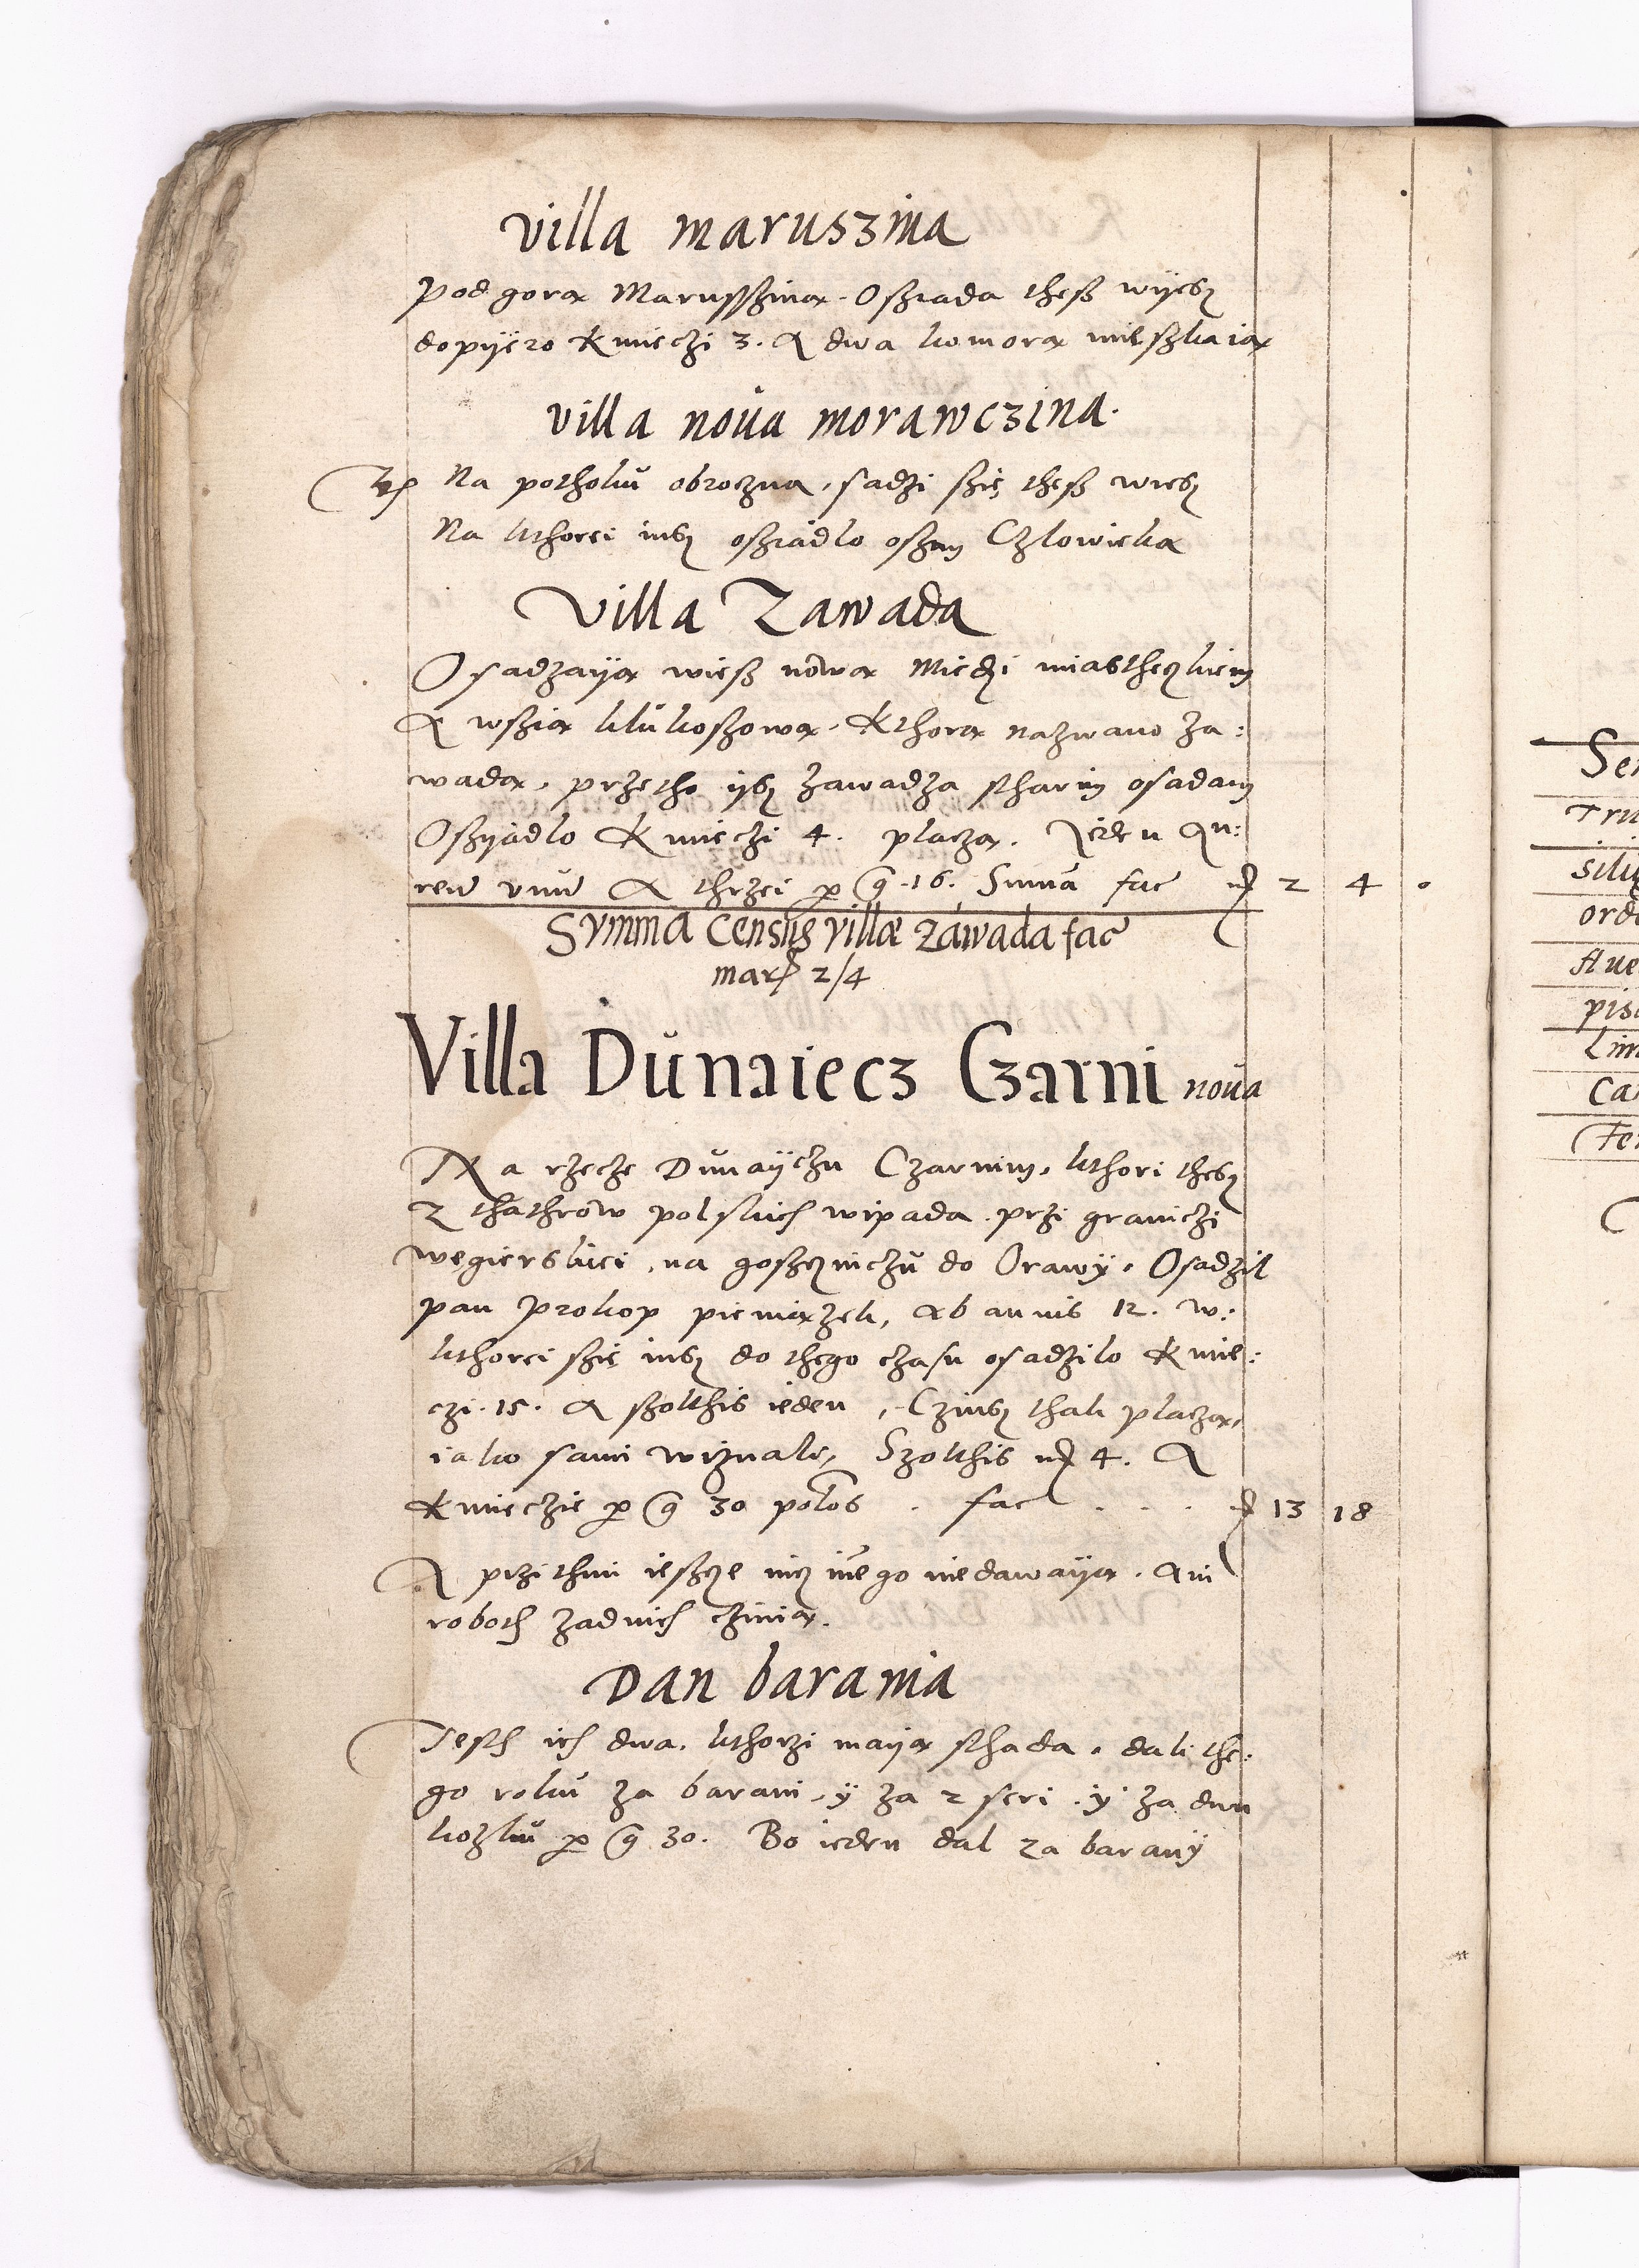 Villa maruszina
Pod gorą Marussziną. Osziada thesz wyiesz
dopyero Kmieczi 3. A dwa komorą mieszkaią
Villa nova morawczina.
Na pothoku obroczna, sadzi szię thesz wiesz
Na kthorei iusz osziadlo oszm Czlowieka
Villa Zawada
Osadzayą wiesz nową Miedzi miastheczkiem
A wszią klukoszową. Kthorą nazwano Za:
wadą, przetho ysz zawadza stharim osadam
Oszyadlo Kmieczi 4. placzą. Ieden Au:
reum unum A thrzei per g 16. Summa fac mar 2 4 0
Summa Census villæ Zawada fac
mar 2/4
Villa Dunaiecz Czarni nova
Na rzecze Dunayczu Czarnim, kthori thesz
Z thathrow polskich wipada przi graniczi
węgierskiei, na gosczinczu do Orawy, Osadzil
pan Prokop pieniążek, ab annis 12. w:
kthorei szię iusz do thego czasu osadzilo Kmie:
czi 15. A szolthis ieden, Czinsz thak placzą,
iako sami wiznali, Szolthis mar 4. A
Kmieczie per g 30 polos fac mar 13 18
A przithim iescze nicz inego niedawayą. Ani
roboth zadnich czinią.
Dan barania
Iesth ich dwa, kthorzi mayą sthada, dali the:
go roku za barani, y za 2 seri y za dwu
kozku per g 30. Bo ieden dal za barany